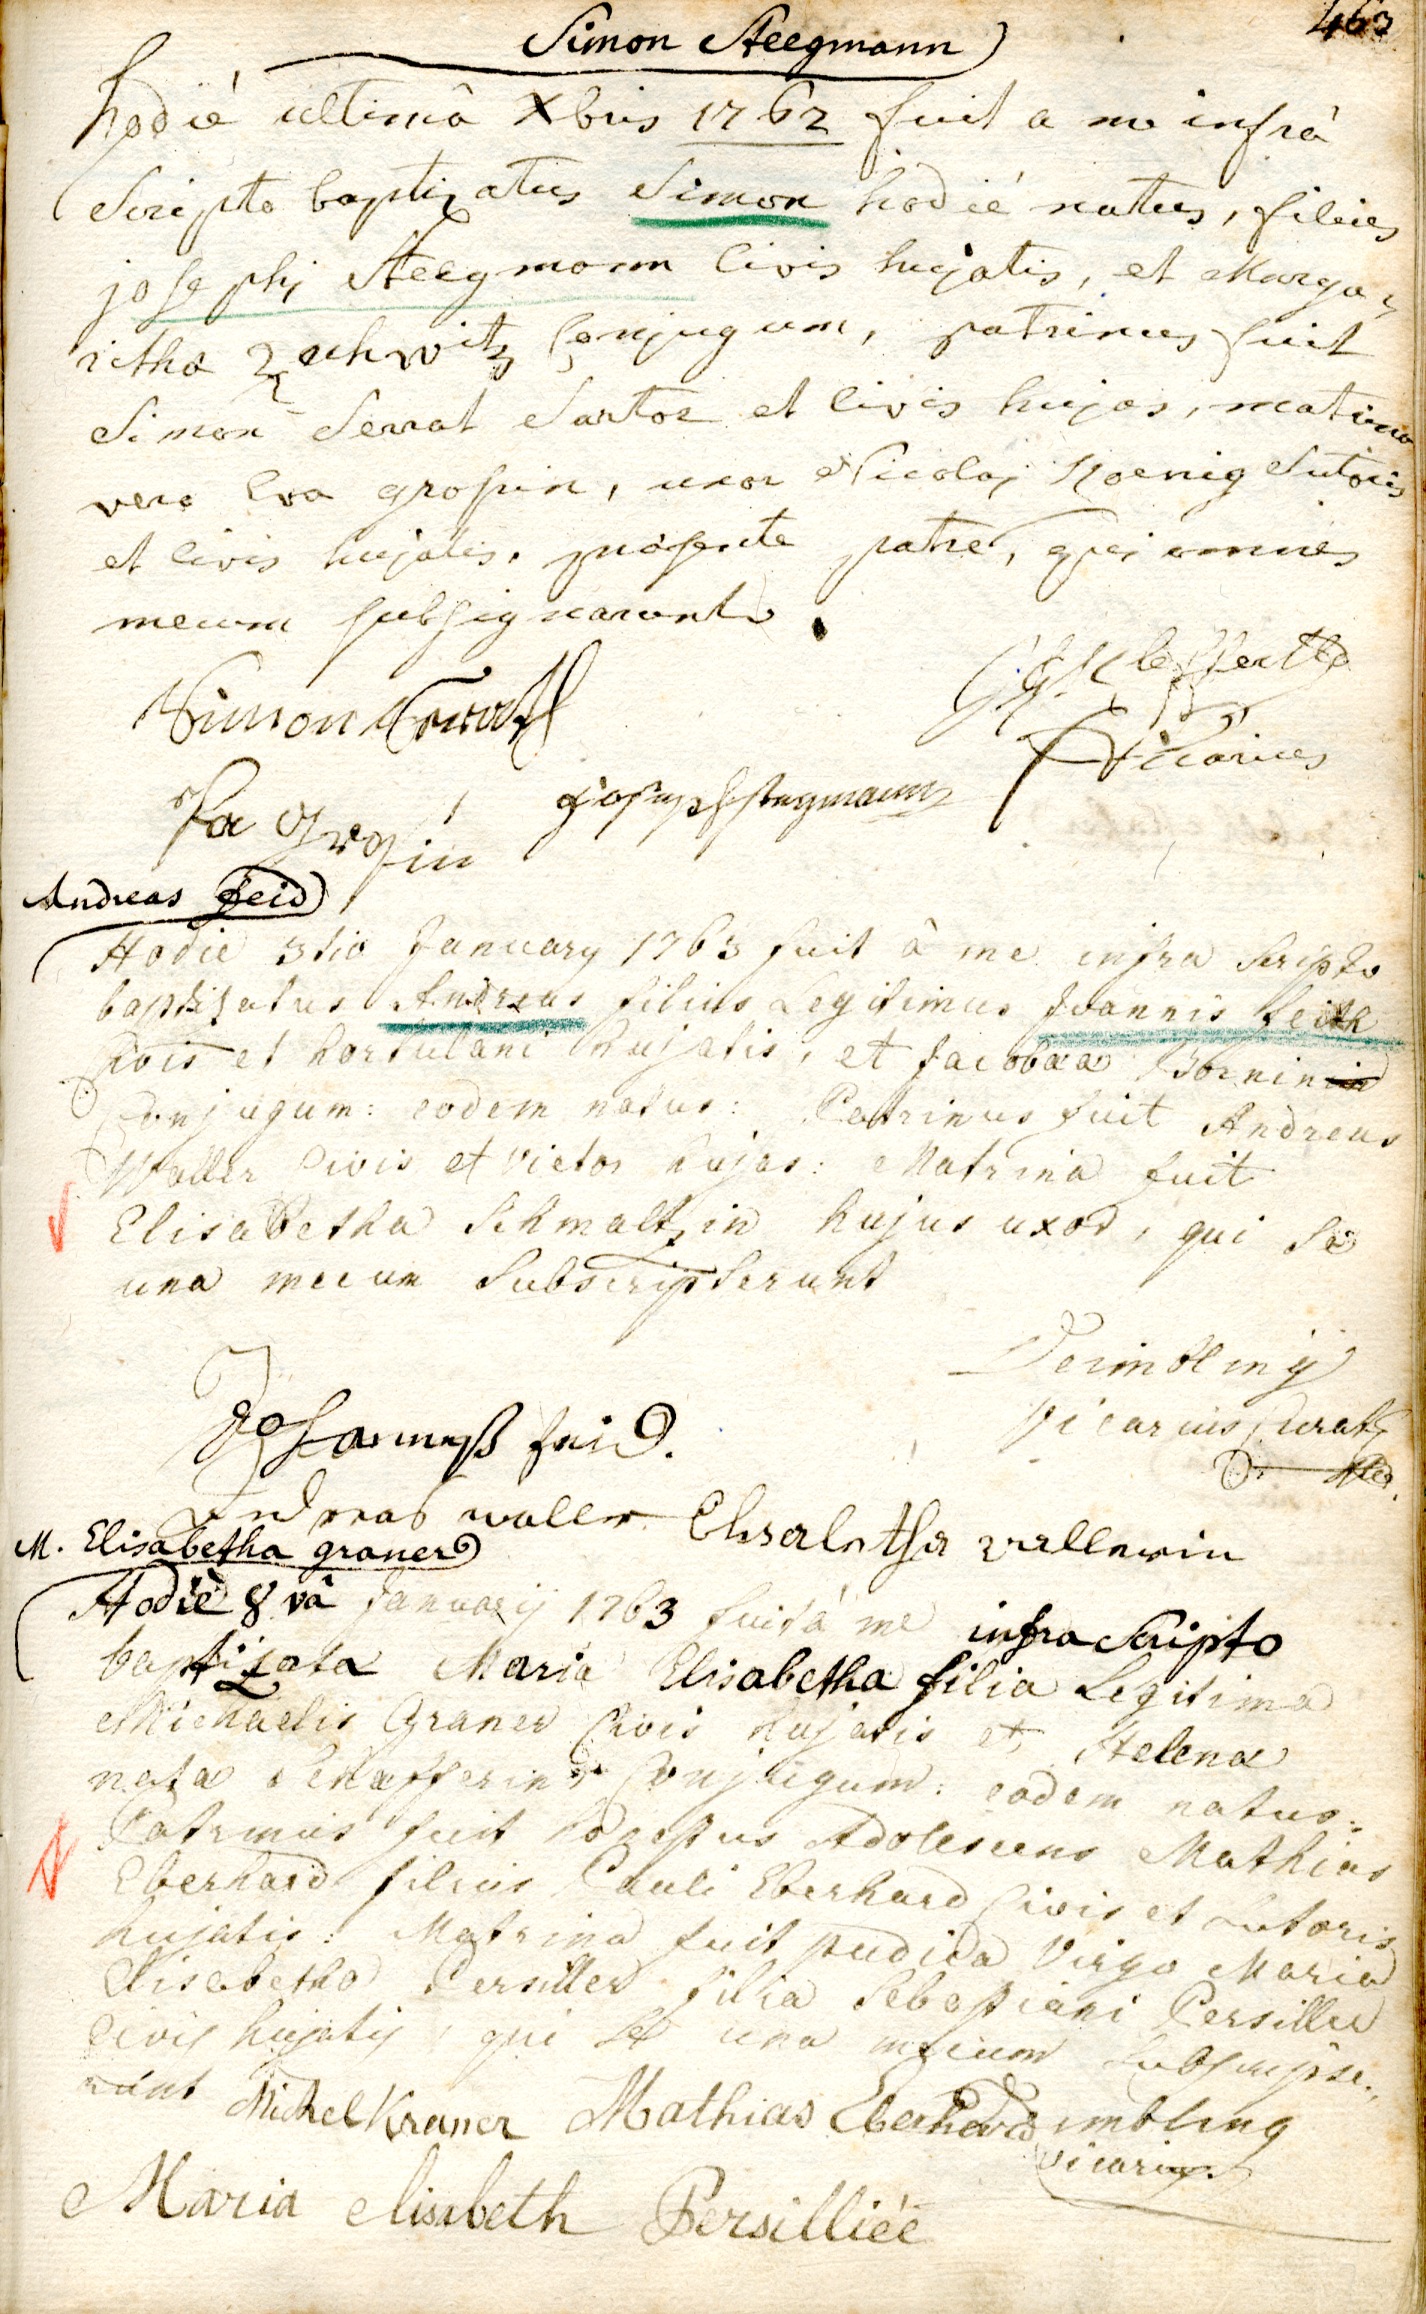 463
Simon Steegmann
hodié ultimâ Xbris 1762 fuit a me infrà
Scripto baptizatus Simon hodié natus, filius
josephj Steegmann civis hujatis, et Marga-
ritha Zachwitz Conjugum, patrinus fuit
Simon Serrat Sartor et civis hujas, matrina
vero Eva grosin, uxor Nicolaj Koenig Sutoris
et civis hujatis, praesente patre, qui omnes
mecum subsignarunt
Simon
Vicarius
Joseph stegmann
Andreas feid
Hodie 3tio January 1763 fuit à me infra Scripto
baptizatus Andreas filius Legitimus Joannis feith
Civis et hortulani hujatis, et Jacobaea Bornin
Conjugum: eodem natus: Patrinus fuit Andreas
Waller Civis et Vietor hujas: Matrina fuit
Elisabetha Schmaltzin hujus uxor, qui se
una mecum Subscripserunt
Deimbling
Vicarius Curatg
Johannes feid.
Andreas waller Elisabetha wallerin
M. Elisabetha graner
Hodiè 8vâ Januarij 1763 fuit à me infra Scripto
baptizata Maria Elisabetha filia Legitima
Michaelis Graner Civis hujatis et Helena
nata Schafferin Conjugum: eodem natus:
Patrinus fuit honestus Adolescens Mathias
Eberhard filius Pauli Eberhard Civis et Sutoris
hujatis: Matrina fuit pudica Virgo Maria
Elisabetha Persiller filia Sebastiani Persiller
civis hujatis, qui se una mecum Subscripse-
runt Michel Kraner Mathias Eberhard Deimbling
vicarius
Maria elisabeth Persilliéé